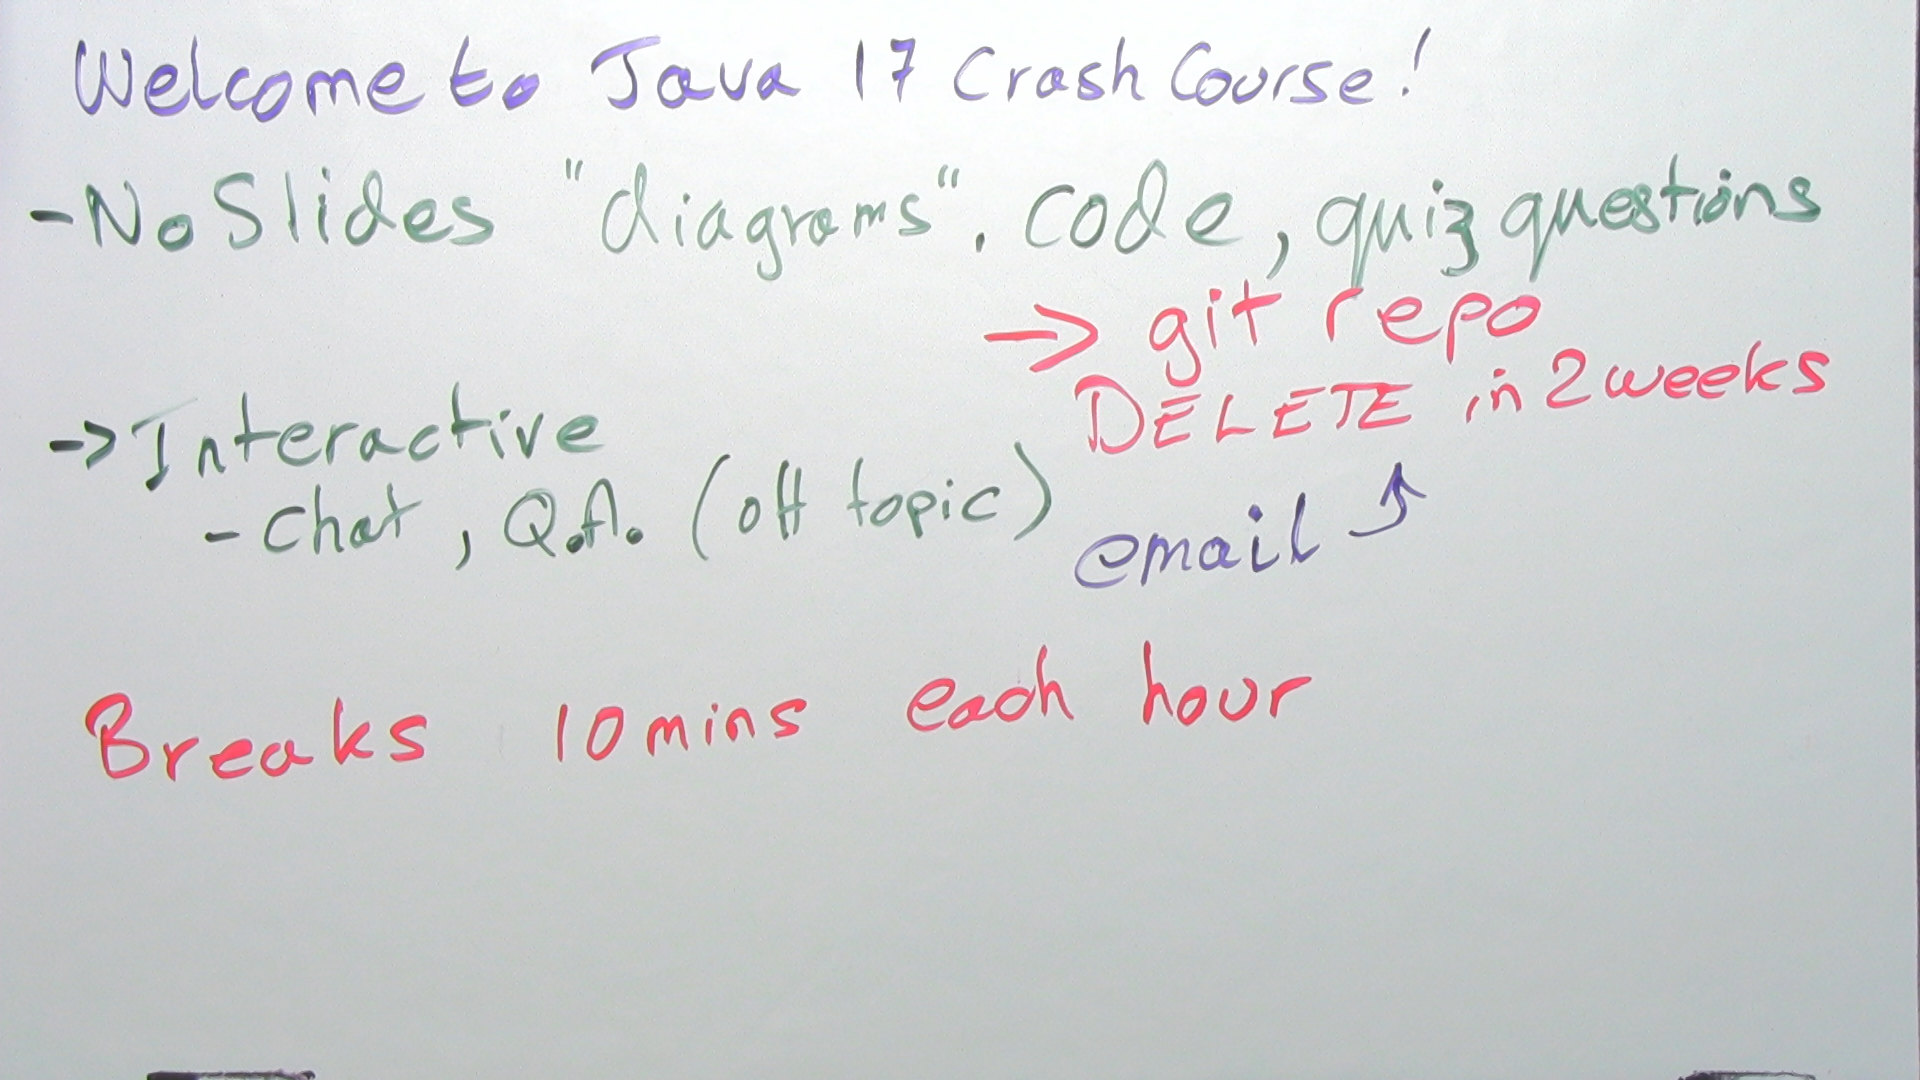 Welcome to Java 17 Crash Course!
- No Slides "diagrams". code, quiz questions
-> git repo
DELETE in 2 weeks
-> Interactive
- Chat, Q.A. (off topic)
email ↑
Breaks 10 mins each hour